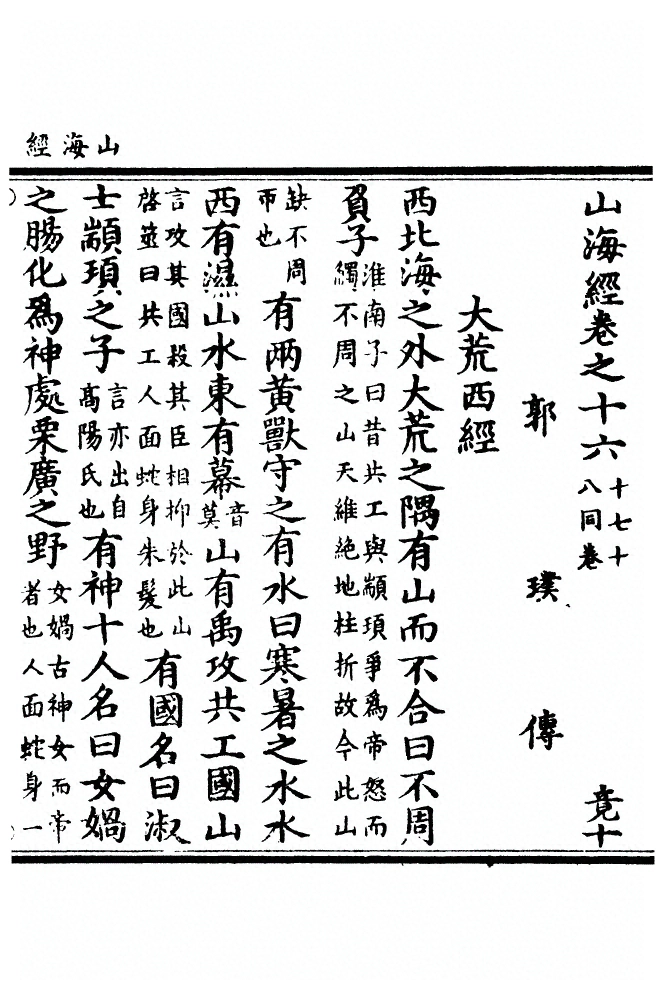 山海經
山海經卷之十六十七十八同卷 竟十
郭璞傳
大荒西經
西北海之外大荒之隅有山而不合曰不周
負子淮南子曰昔共工與顓頊爭爲帝怒而觸不周之山天維絶地柱折故今此山
缺不周帀也有兩黃獸守之有水曰寒暑之水水
西有濕山水東有幕音莫山有禹攻共工國山
言攻其國殺其臣相抑於此山啓筮曰共工人面蛇身朱髮也有國名曰淑
士顓頊之子言亦出自髙陽氏也有神十人名曰女媧
之腸化爲神處栗廣之野女媧古神女而帝者也人面蛇身一